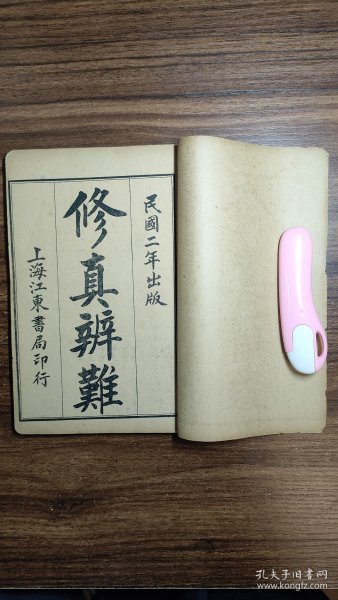 民國二年出版
修真辨難
上海江東書局印行
孔夫子旧书网
www.kongfz.com